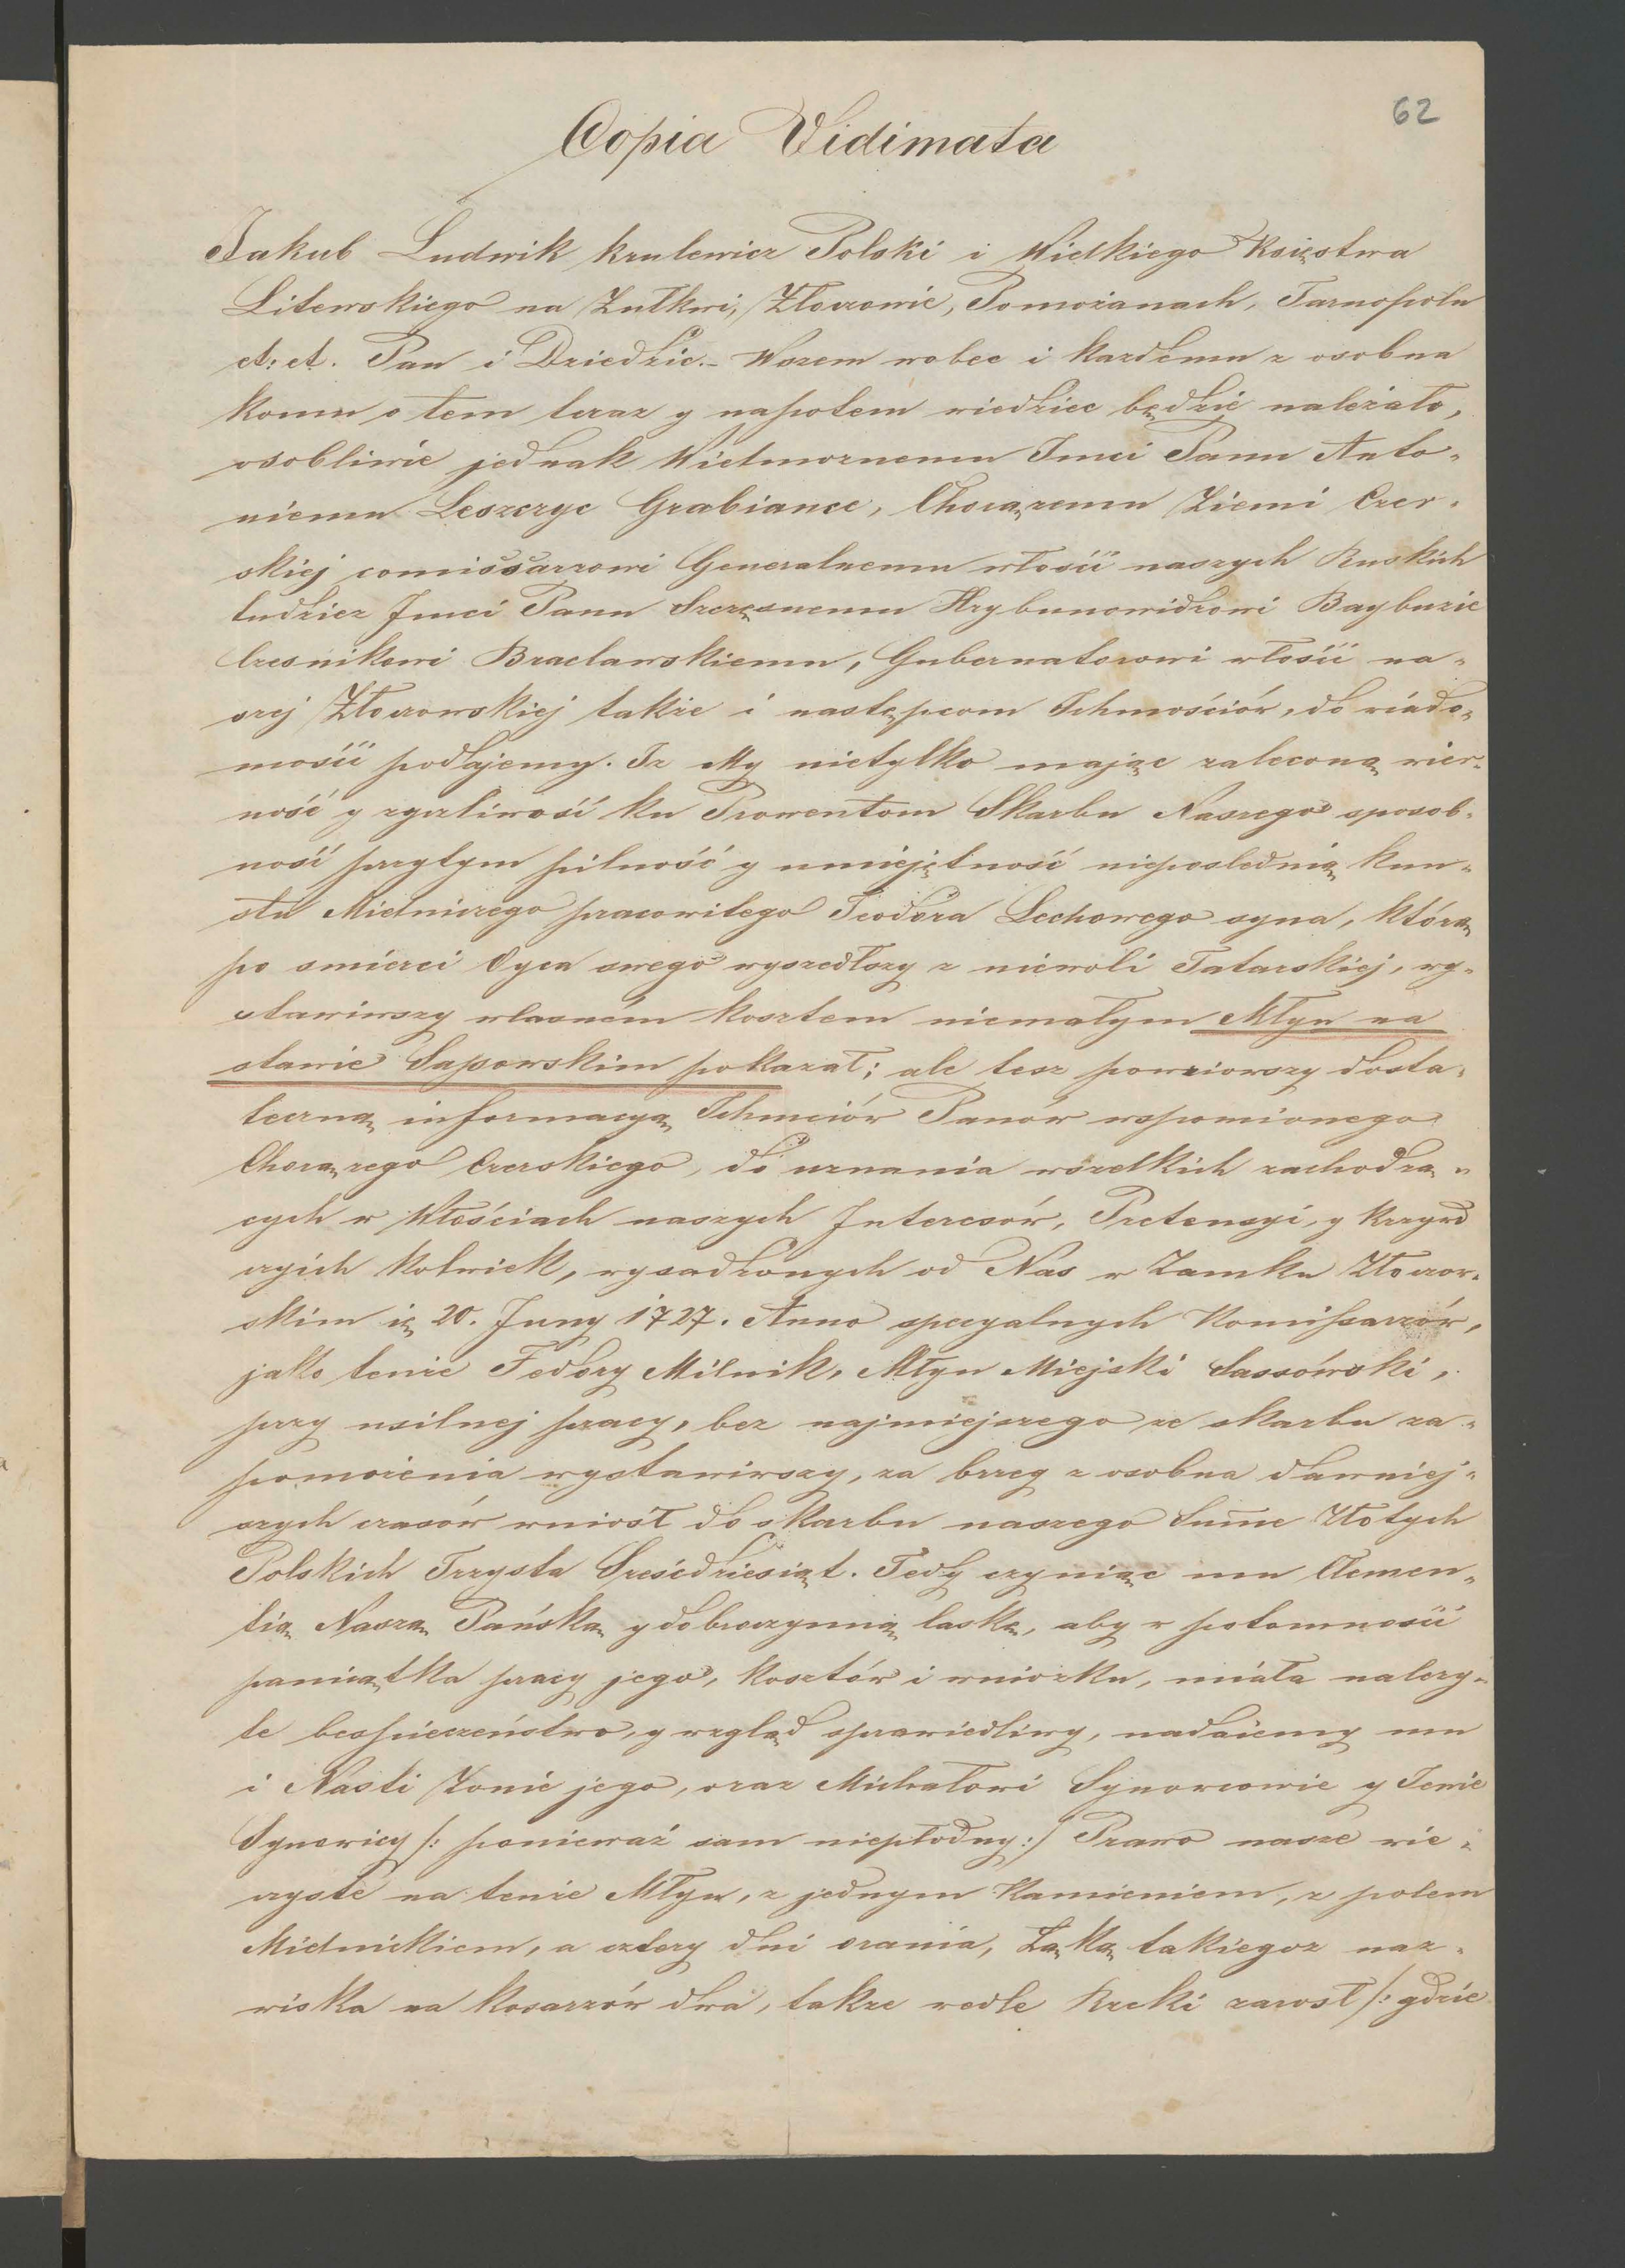 62
Copia Vidimata
Jakub Ludwik krulewicz Polski i Wielkiego Księstwa
Litewskiego na Żułkwi, Złoczowie, Pomorzanach, Tarnopolu
et: et. Pan i Dziedzic.- Wszem wobec i każdemu z osobna
komu o tem teraz y napotem wiedziec będzie należało,
osobliwie jednak Wielmoznemu Jmci Panu Anto-
niemu Leszczyc Grabiance, Chorązemu Ziemi Czer-
skiej comissarzowi Generalnemu włości naszych Ruskich
tudziez Jmci Panu Szczęsnemu Hrybunowidzowi Baybuzie
Czesnikowi Bracławskiemu, Gubernatorowi włości na-
szej Złoczowskiej także i następcom Ichmościów, do wiado-
mości podajemy. Iz My nietylko mając zaleconą wier-
ność y zyczliwość ku Prowentom Skarbu Naszego sposob-
ność przytym pilność y umiejętność nieposlednią kun-
sztu Mielniczego pracowitego Teodora Lechowego syna, którą
po smierci Oyca swego wyszedłszy z niewoli Tatarskiej, wy-
stawiwszy własném kosztem niemałym Młyn na
stawie Sasowskim pokazał; ale tesz powziowszy dosta-
teczną informacyą Ichmciów Panów wspomionego
Chorązego Czerskiego, do uznania wszelkich zachodzą-
cych w Włościach naszych Interesów, Pretensyi, y krzywd
czyich kolwiek, wysadzonych od Nas w Zamku Złoczow-
skim ię 20. Juny 1727. Anno specyalnych Komissarzów,
jako tenże Fedory Milnik, Młyn Miejski Sassówski,
przy usilnej pracy, bez najmiejszego ze skarbu za-
pomożenia wystawiwszy, za brzeg z osobna dawniej-
szych czasów wniósł do skarbu naszego Summe Złotych
Polskich Trzysta Sześćdziesiąt. Tedy czyniąc mu Clemen-
tią Naszą Pańską y dobroczynną laską, aby w potomności
pamiątka pracy jego, kosztów i wniozku, miała nalezy-
te bespieczeństwo, y wzgląd sprawiedliwy, nadaiemy mu
i Nasti Żonie jego, oraz Michałowi Synowcowie y Tenie
Synowicy /: ponieważ sam niepłodny :/ Prawo nasze wie-
czyste na tenże Młyn, z jednym Kamieniem, z polem
Mielnickiem, a cztery dni orania, Łąką takiegoz naz-
wiska na kosarzów dwa, takze wedle Rzeki zarost /: gdzie